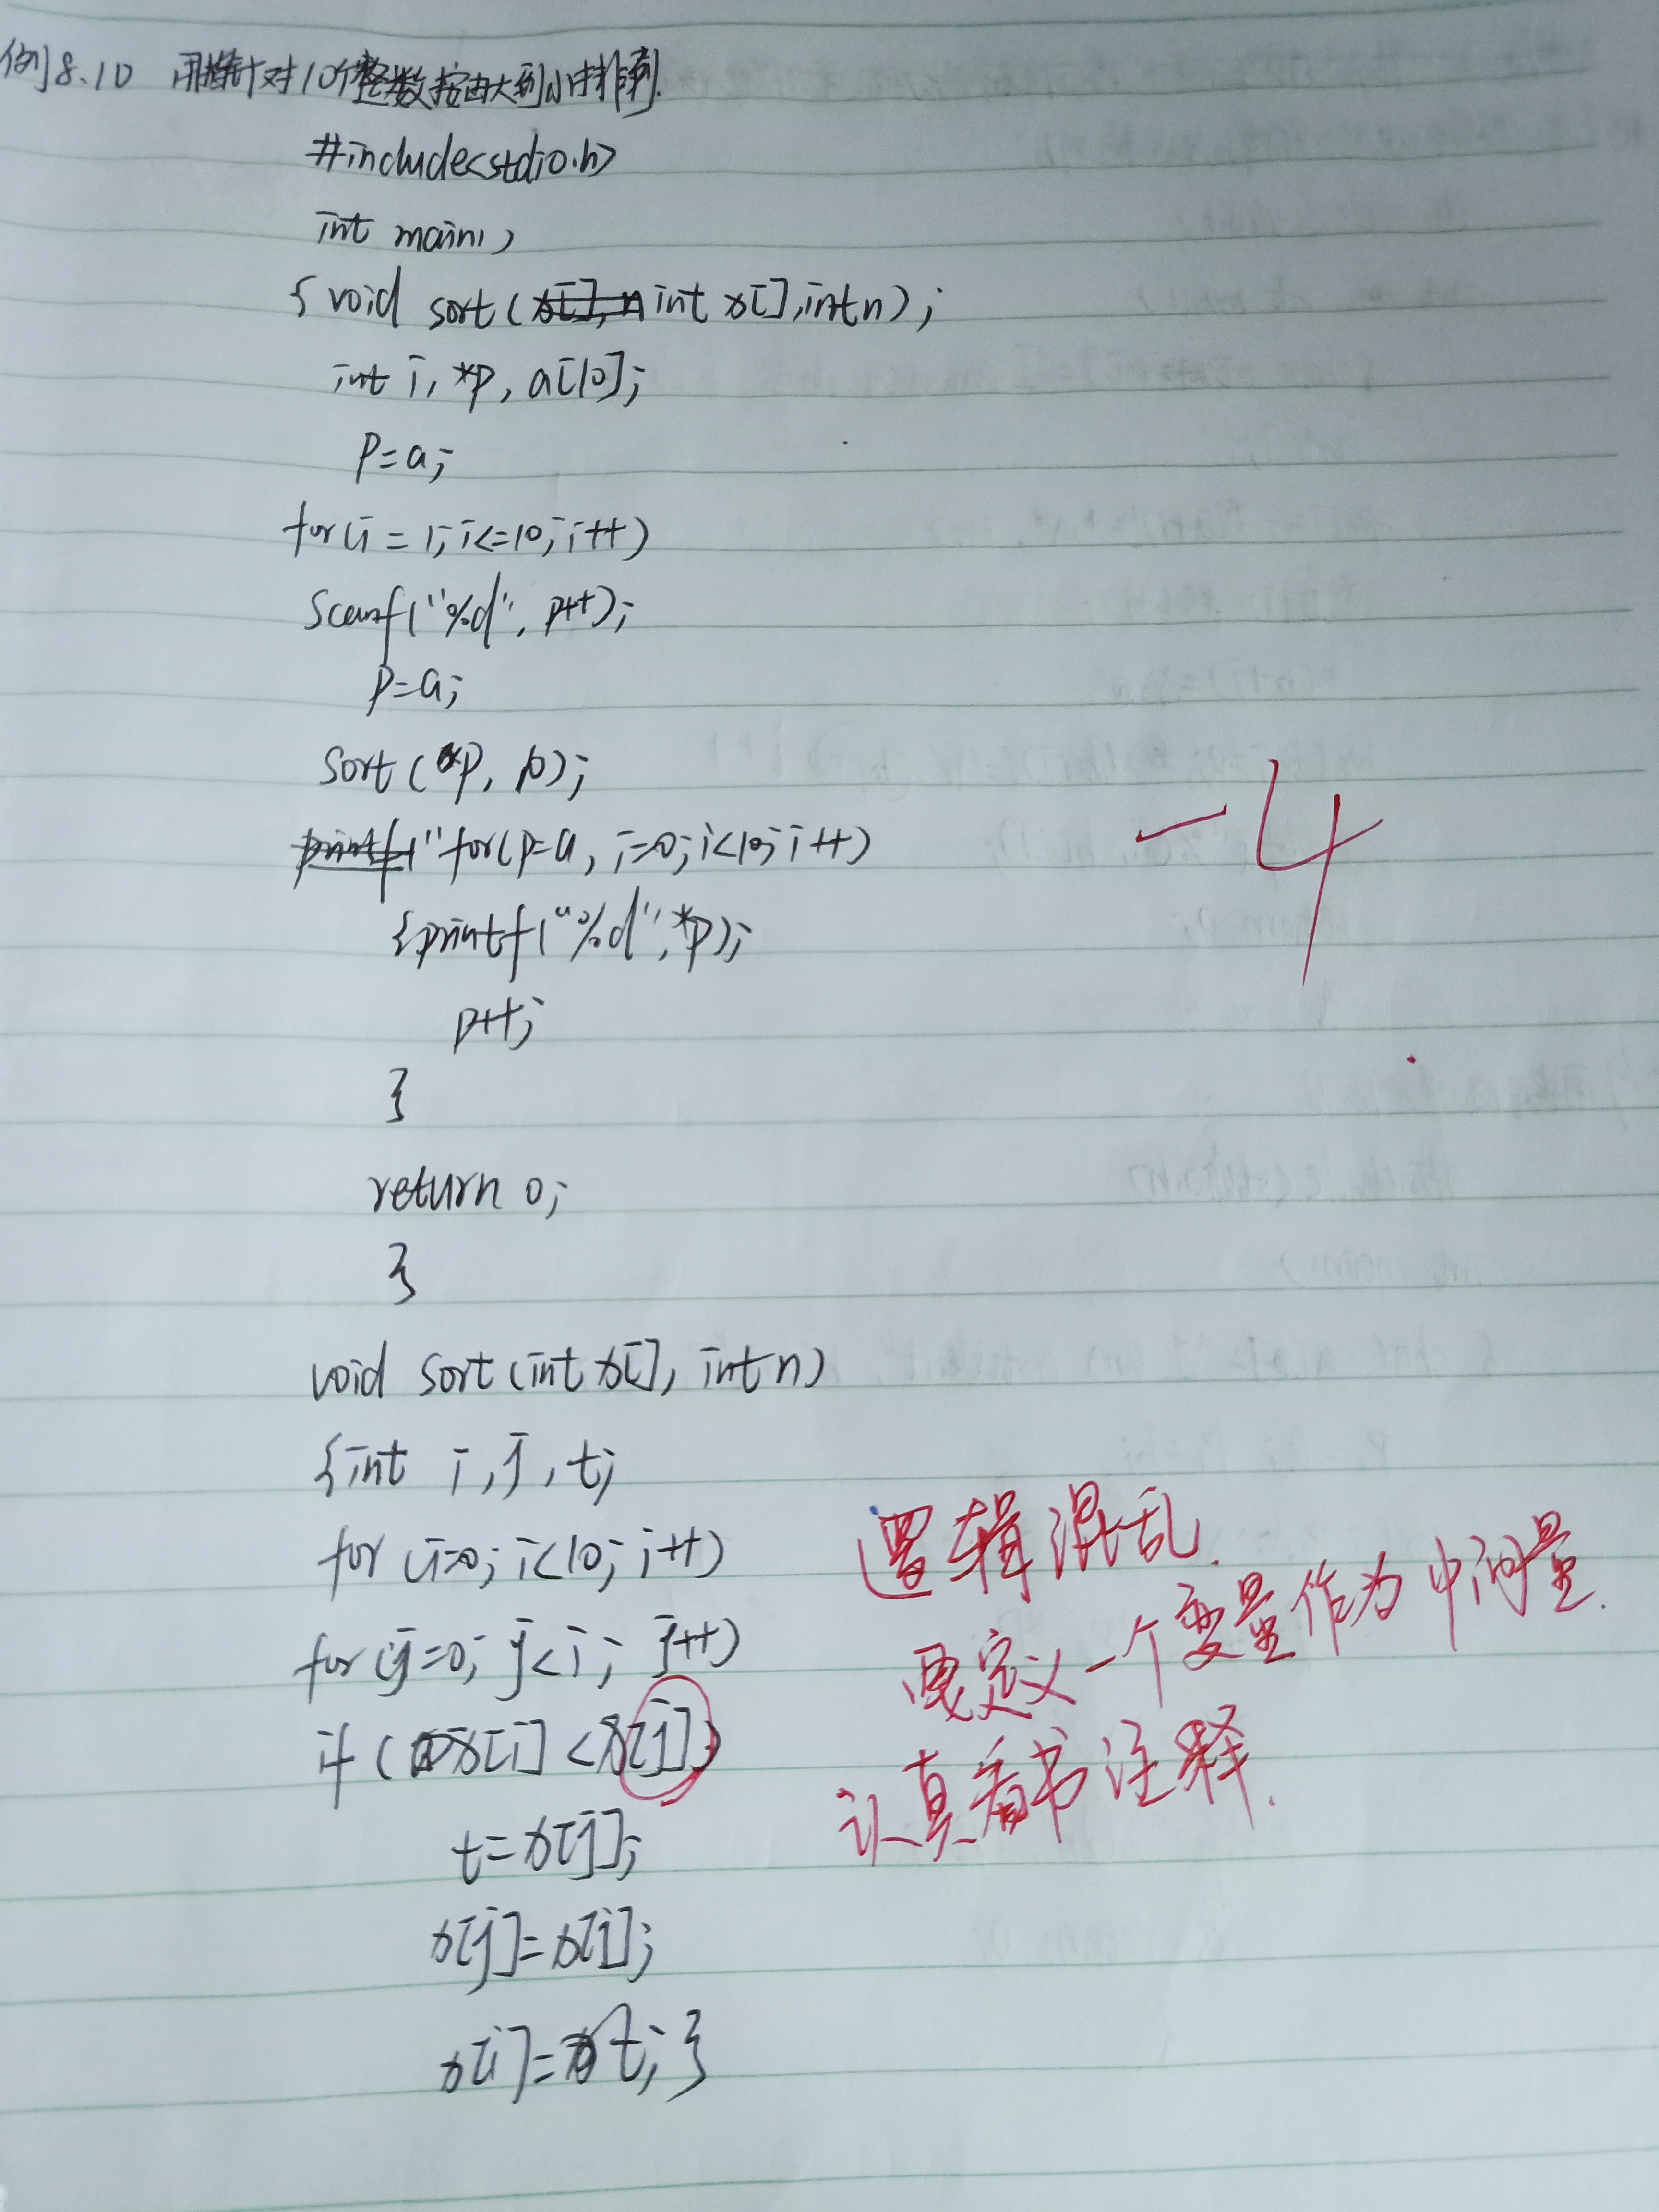 例8.10 用指针对10个整数按由大到小排列.
#include<stdio.h>
int main()
{ void sort(int x[],int n);
int i, *p, a[10];
p=a;
for(i=1;i<=10;i++)
scanf("%d", p++);
p=a;
sort(*p, 10);
for(p=a, i=0;i<10;i++)
{printf("%d",*p);
p++;
}
return 0;
}
void sort(int x[], int n)
{int i,j,t;
for(i=0;i<10;i++)
for(j=0;j<i;j++)
if(x[i]<x[j])
t=x[j];
x[j]=x[i];
x[i]=t;}
-4
逻辑混乱.
要定义一个变量作为中间量.
认真看书注释.